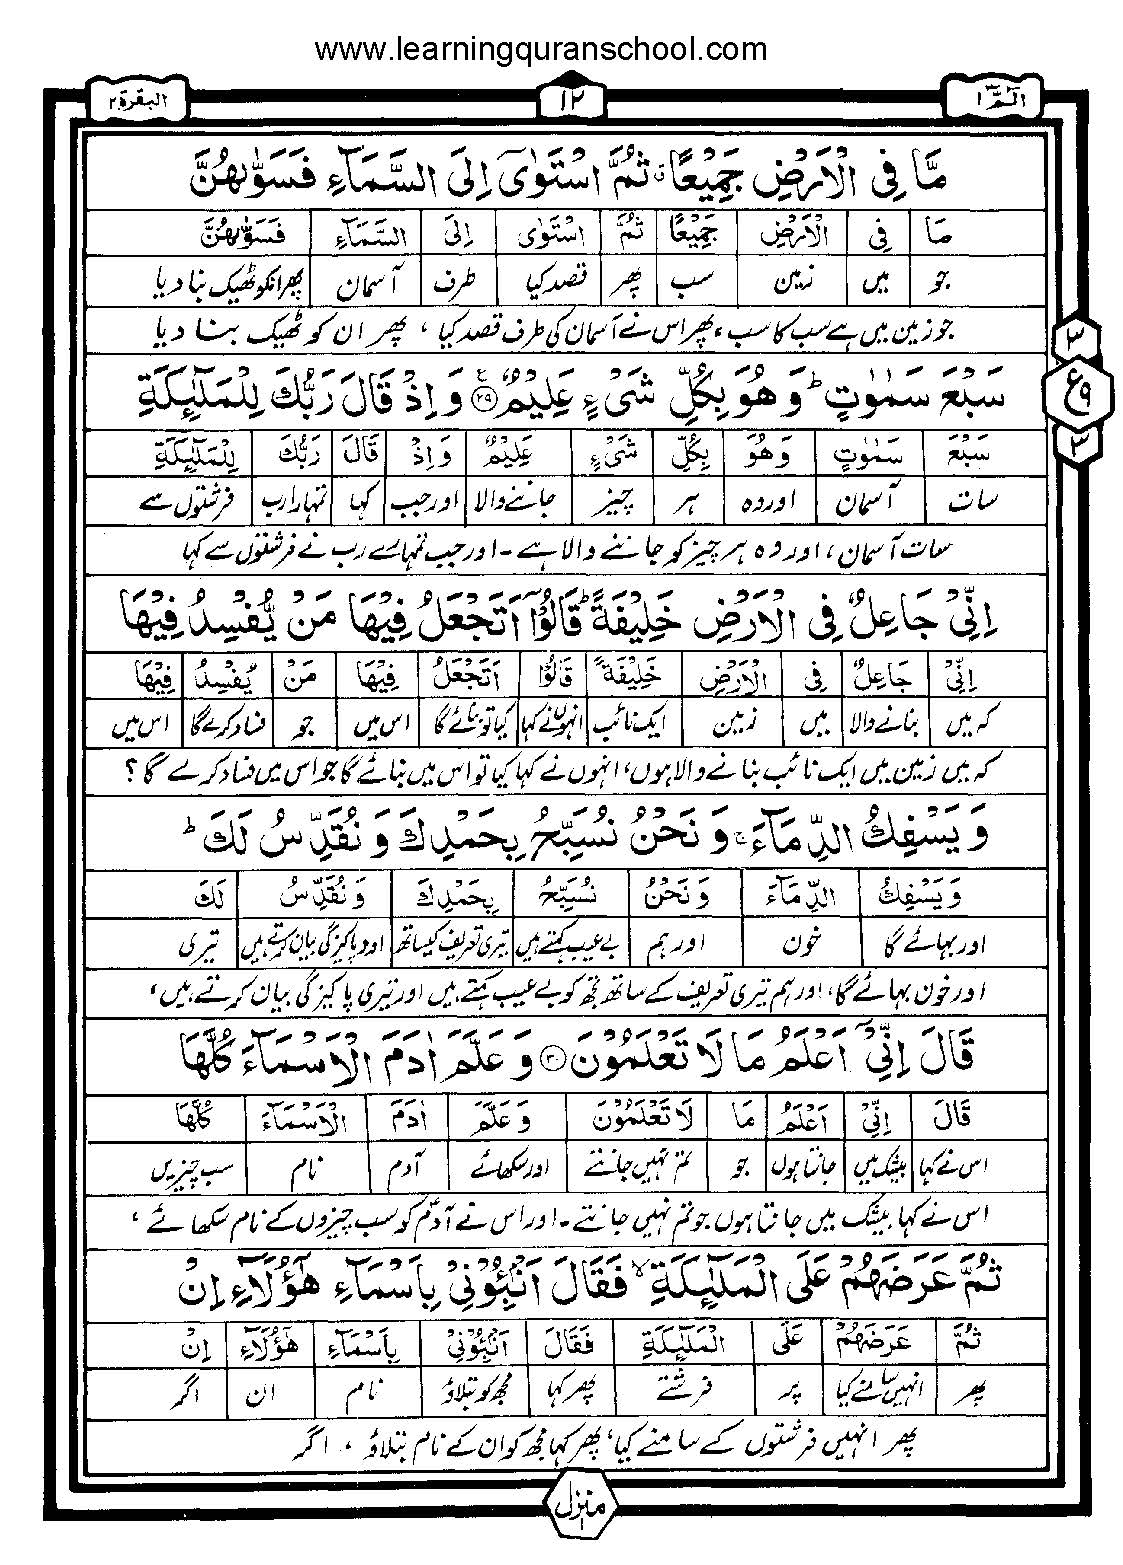 www.learningquranschool.com
الٓمّٓ ۱ ۱۲ البقرة ۲
مَّا فِي الْاَرْضِ جَمِيْعًا ۗ ثُمَّ اسْتَوٰٓى اِلَى السَّمَآءِ فَسَوّٰىهُنَّ
مَا فِي الْاَرْضِ جَمِيْعًا ثُمَّ اسْتَوٰٓى اِلَى السَّمَآءِ فَسَوّٰىهُنَّ
جو میں زمین سب پھر قصد کیا طرف آسمان پھر انکو ٹھیک بنا دیا
جو زمین میں ہے سب کا سب، پھر اس نے آسمان کی طرف قصد کیا، پھر ان کو ٹھیک بنا دیا
۳
سَبْعَ سَمٰوٰتٍ ؕ وَهُوَ بِكُلِّ شَيْءٍ عَلِيْمٌ ۲۹ وَاِذْ قَالَ رَبُّكَ لِلْمَلٰٓئِكَةِ
ع ۹
۳
سَبْعَ سَمٰوٰتٍ وَهُوَ بِكُلِّ شَيْءٍ عَلِيْمٌ وَاِذْ قَالَ رَبُّكَ لِلْمَلٰٓئِكَةِ
سات آسمان اور وہ ہر چیز جاننے والا اور جب کہا تمہارا رب فرشتوں سے
سات آسمان، اور وہ ہر چیز کو جاننے والا ہے۔ اور جب تمہارے رب نے فرشتوں سے کہا
اِنِّيْ جَاعِلٌ فِي الْاَرْضِ خَلِيْفَةً ؕ قَالُوْٓا اَتَجْعَلُ فِيْهَا مَنْ يُّفْسِدُ فِيْهَا
اِنِّيْ جَاعِلٌ فِي الْاَرْضِ خَلِيْفَةً قَالُوْٓا اَتَجْعَلُ فِيْهَا مَنْ يُفْسِدُ فِيْهَا
کہ میں بنانے والا میں زمین ایک نائب انہوں نے کہا کیا تو بنائے گا اس میں جو فساد کرے گا اس میں
کہ میں زمین میں ایک نائب بنانے والا ہوں، انہوں نے کہا کیا تو اس میں بنائے گا جو اس میں فساد کرے گا؟
وَيَسْفِكُ الدِّمَآءَ ۚ وَنَحْنُ نُسَبِّحُ بِحَمْدِكَ وَنُقَدِّسُ لَكَ ؕ
وَيَسْفِكُ الدِّمَآءَ وَنَحْنُ نُسَبِّحُ بِحَمْدِكَ وَنُقَدِّسُ لَكَ
اور بہائے گا خون اور ہم بے عیب کہتے ہیں تیری تعریف کیساتھ اور پاکیزگی بیان کرتے ہیں تیری
اور خون بہائے گا، اور ہم تیری تعریف کے ساتھ تجھ کو بے عیب کہتے ہیں اور تیری پاکیزگی بیان کرتے ہیں،
قَالَ اِنِّيْٓ اَعْلَمُ مَا لَا تَعْلَمُوْنَ ۳۰ وَعَلَّمَ اٰدَمَ الْاَسْمَآءَ كُلَّهَا
قَالَ اِنِّيْٓ اَعْلَمُ مَا لَا تَعْلَمُوْنَ وَعَلَّمَ اٰدَمَ الْاَسْمَآءَ كُلَّهَا
اس نے کہا بیشک میں جانتا ہوں جو تم نہیں جانتے اور سکھائے آدم نام سب چیزیں
اس نے کہا بیشک میں جانتا ہوں جو تم نہیں جانتے۔ اور اس نے آدمؑ کو سب چیزوں کے نام سکھائے،
ثُمَّ عَرَضَهُمْ عَلَى الْمَلٰٓئِكَةِ ۙ فَقَالَ اَنْۢبِـُٔوْنِيْ بِاَسْمَآءِ هٰٓؤُلَآءِ اِنْ
ثُمَّ عَرَضَهُمْ عَلَى الْمَلٰٓئِكَةِ فَقَالَ اَنْۢبِـُٔوْنِيْ بِاَسْمَآءِ هٰٓؤُلَآءِ اِنْ
پھر انہیں سامنے کیا پر فرشتے پھر کہا مجھ کو بتلاؤ نام ان اگر
پھر انہیں فرشتوں کے سامنے کیا، پھر کہا مجھ کو ان کے نام بتلاؤ، اگر
منزل ۱